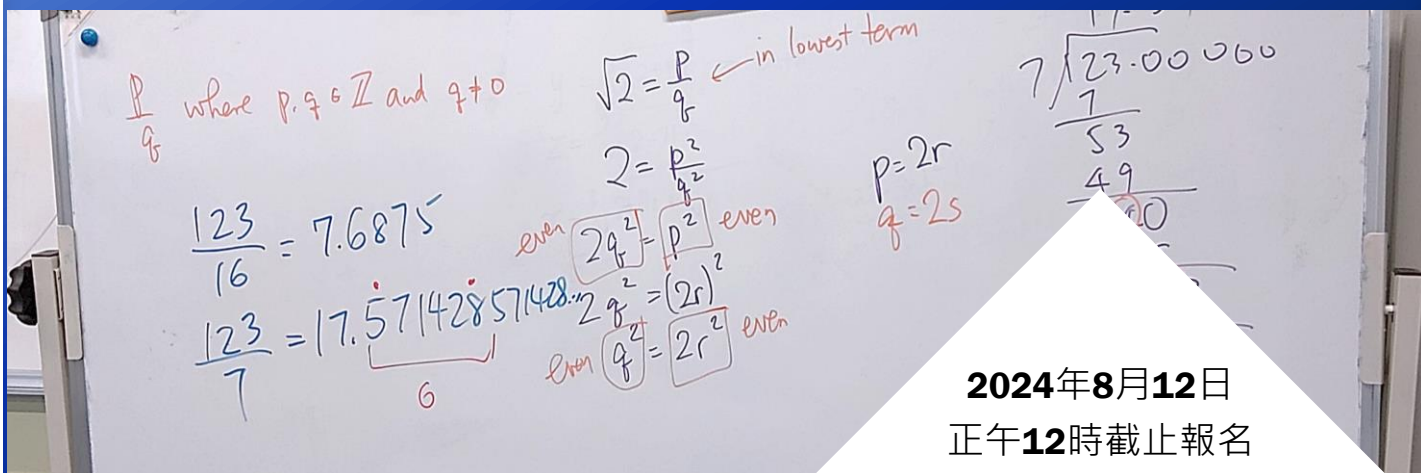 p/q where p, q ∈ ℤ and q ≠ 0
123/16 = 7.6875
123/7 = 17.5̇71428̇571428...
6
√2 = p/q ← in lowest term
2 = p²/q²
even 2q² = p² even
2q² = (2r)²
even q² = 2r² even
p = 2r
q = 2s
7
123.00000
7
53
49
2024年8月12日
正午12時截止報名